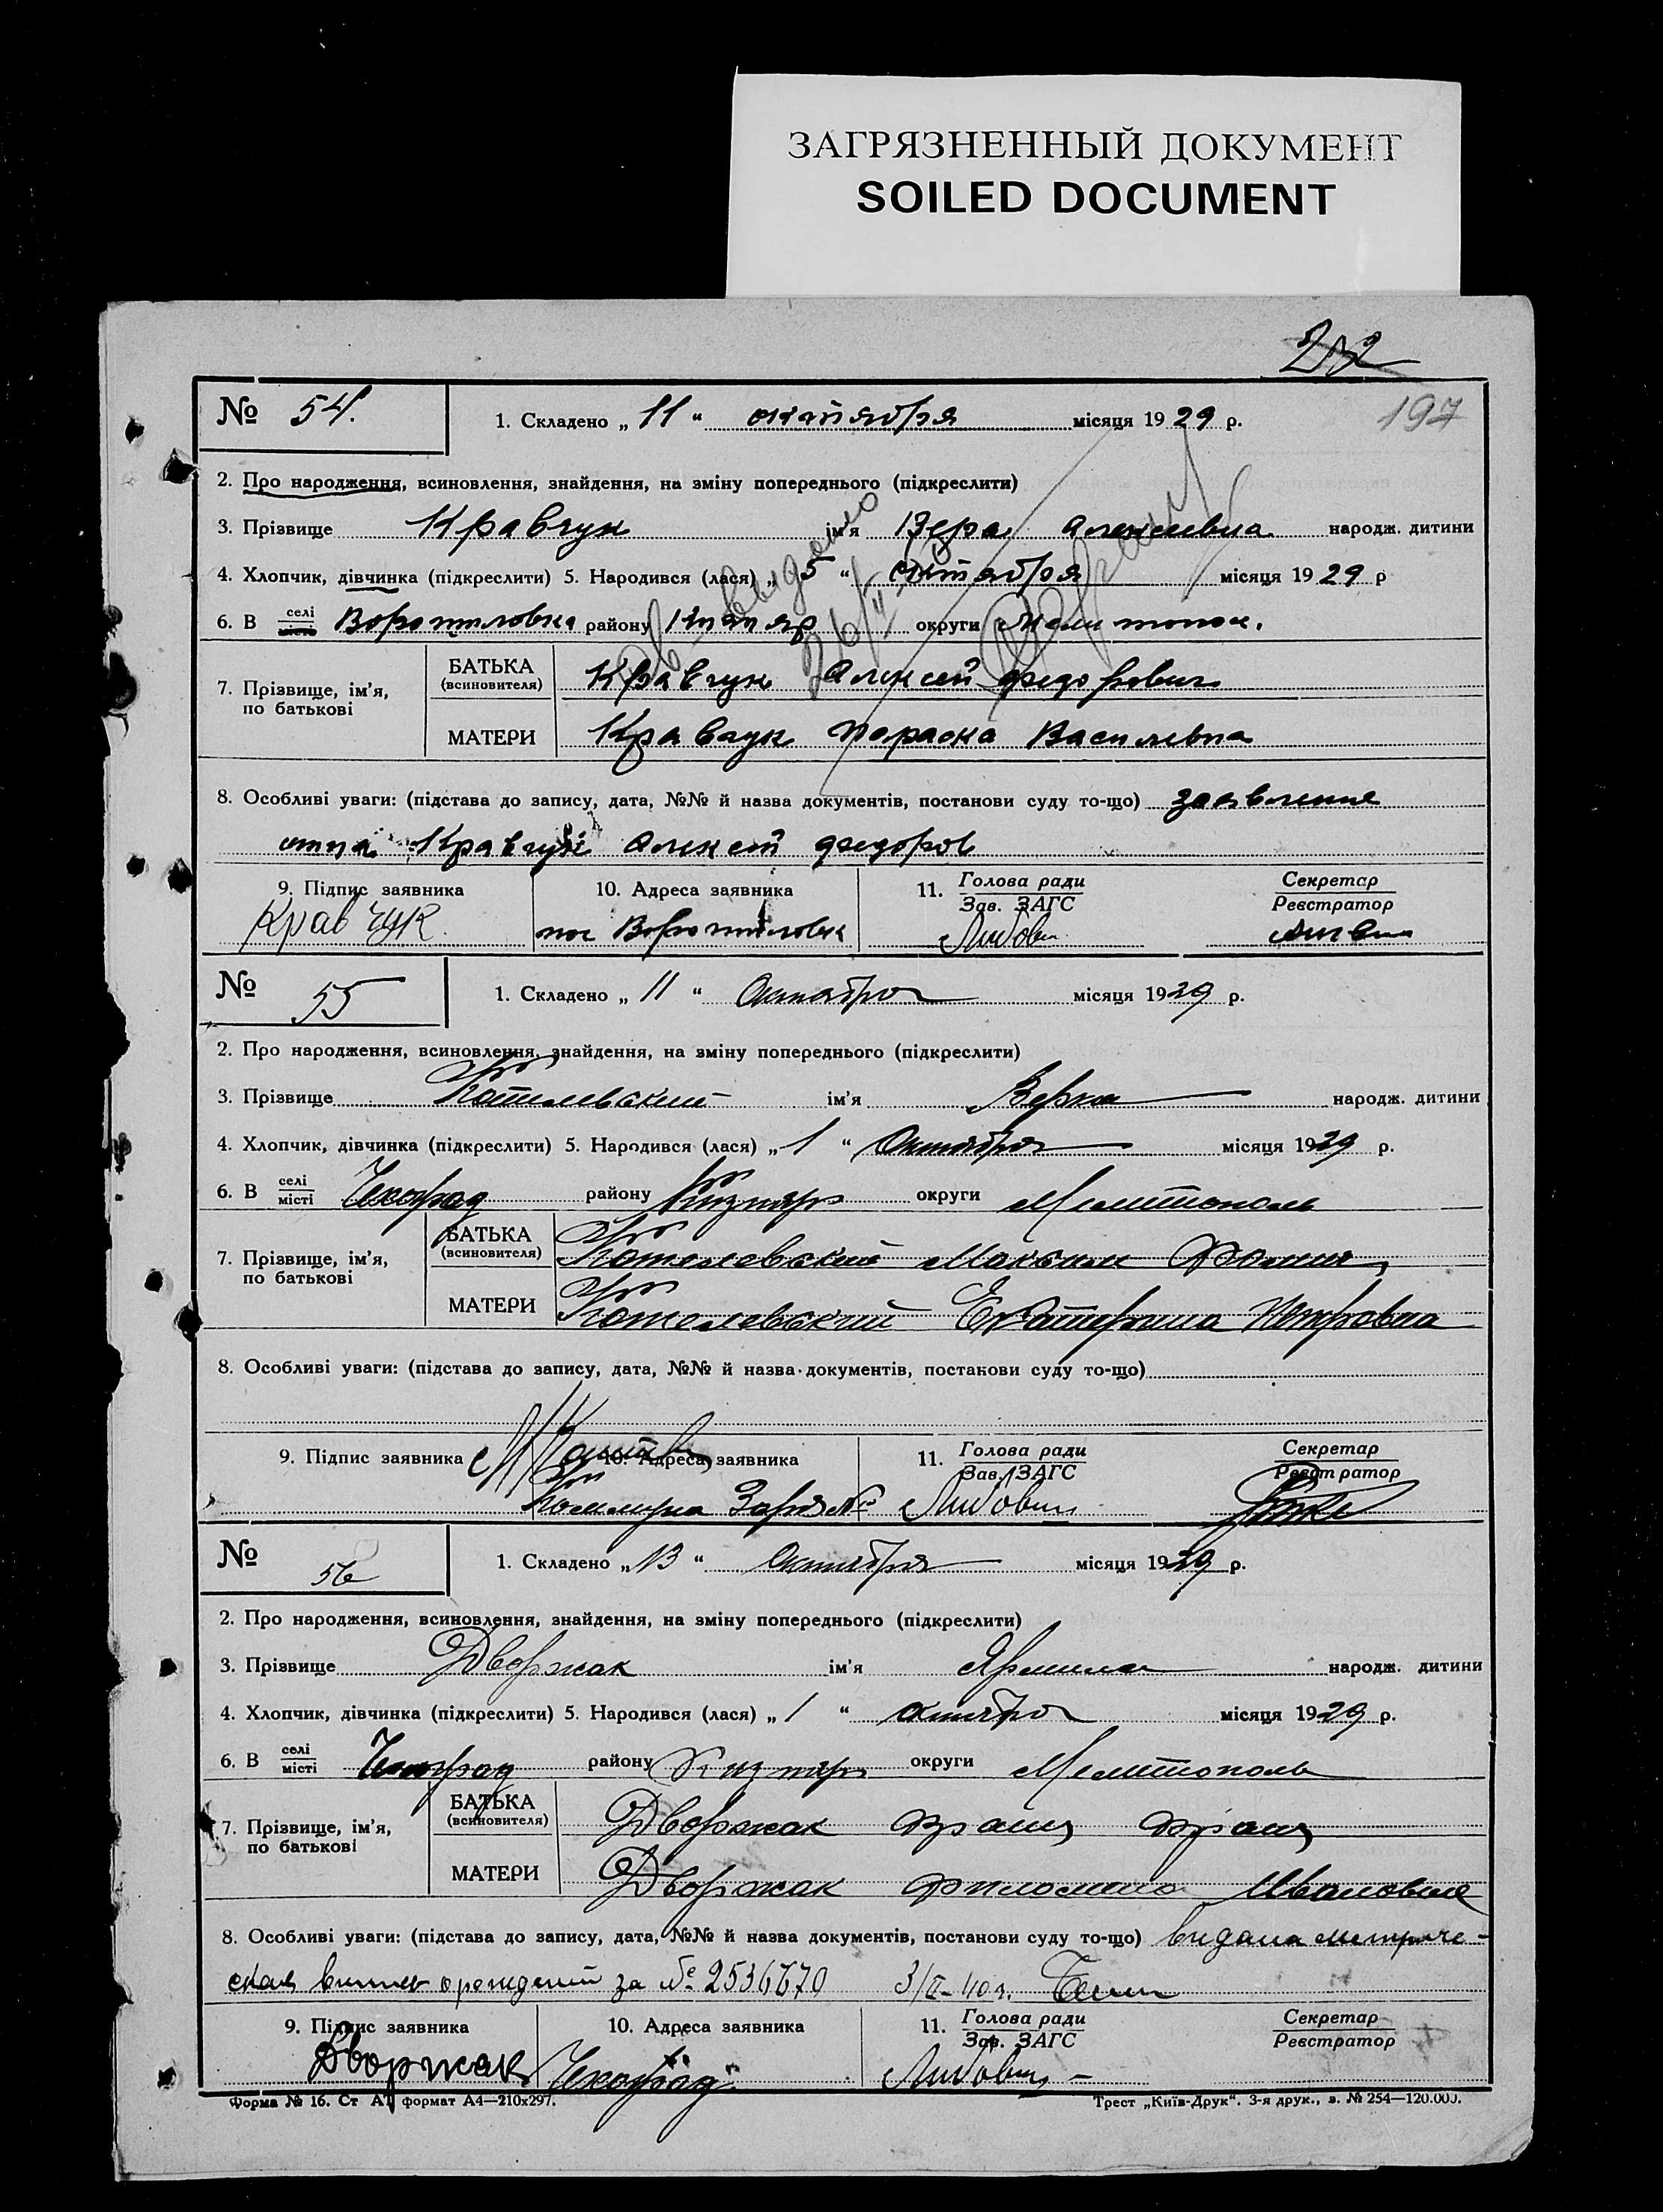 ЗАГРЯЗНЕННЫЙ ДОКУМЕНТ
SOILED DOCUMENT
202
197
№ 54. 1. Складено „ 11 “ октября місяця 1929 р.
2. Про народження, всиновлення, знайдення, на зміну попереднього (підкреслити)
3. Прізвище Кравчук ім'я Вера Алексеевна народж. дитини
4. Хлопчик, дівчинка (підкреслити) 5. Народився (лася) „ 5 “ октября місяця 1929 р
6. В селі місті району округи
7. Прізвище, ім'я, по батькові
БАТЬКА (всиновителя) Кравчук Алексей Федорович
МАТЕРИ Кравчук Параска Василевна
8. Особливі уваги: (підстава до запису, дата, №№ й назва документів, постанови суду то-що) заявление
отца Кравчук Алексей Федоров
9. Підпис заявника 10. Адреса заявника 11. Голова ради Зав. ЗАГС Секретар Реєстратор
Кравчук
№ 55 1. Складено „ 11 “ Октября місяця 1929 р.
2. Про народження, всиновлення, знайдення, на зміну попереднього (підкреслити)
3. Прізвище ім'я народж. дитини
4. Хлопчик, дівчинка (підкреслити) 5. Народився (лася) „ 1 “ Октября місяця 1929 р.
6. В селі місті Чехоград району округи Мелитополь
7. Прізвище, ім'я, по батькові
БАТЬКА (всиновителя) Котелевский Максим
МАТЕРИ Котелевский Екатерина Петровна
8. Особливі уваги: (підстава до запису, дата, №№ й назва документів, постанови суду то-що)
9. Підпис заявника 10. Адреса заявника 11. Голова ради Зав. ЗАГС Секретар Реєстратор
№ 56 1. Складено „ 13 “ Октября місяця 1929 р.
2. Про народження, всиновлення, знайдення, на зміну попереднього (підкреслити)
3. Прізвище Дворжак ім'я Ярмила народж. дитини
4. Хлопчик, дівчинка (підкреслити) 5. Народився (лася) „ 1 “ октября місяця 1929 р.
6. В селі місті Чехоград району округи Мелитополь
7. Прізвище, ім'я, по батькові
БАТЬКА (всиновителя) Дворжак Франц Франц
МАТЕРИ Дворжак Ивановна
8. Особливі уваги: (підстава до запису, дата, №№ й назва документів, постанови суду то-що) видана метриче-
ская о рождении за № 2536670 40 г.
9. Підпис заявника 10. Адреса заявника 11. Голова ради Зав. ЗАГС Секретар Реєстратор
Дворжак Чехоград
Форма № 16. Ст А4 формат А4—210х297. Трест „Київ-Друк“. 3-я друк., з. № 254—120.000.